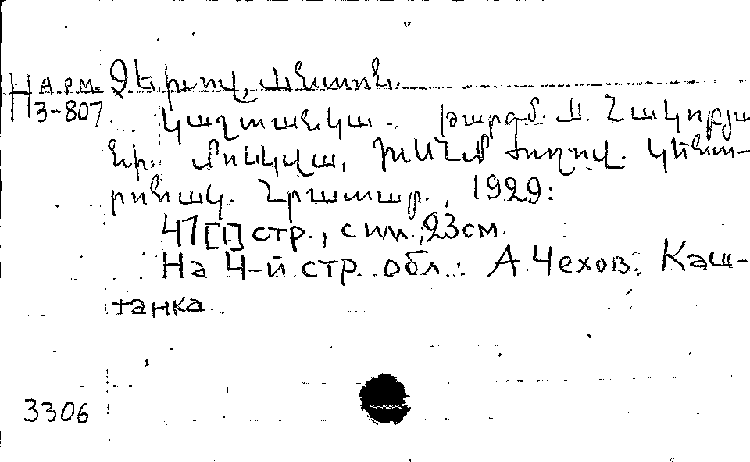 Н арм. Չեխով, Անտոն.
3-807
Կաշտանկա. Թարգմ. Ա. Հակոբյա-
նի. Մոսկվա, ԽՍՀՄ ժողով. Կենտ-
րոնակ. Հրատար., 1929:
47[1] стр., с илл., 23 см.
На 4-й стр. обл.: А. Чехов. Каш-
танка
3306